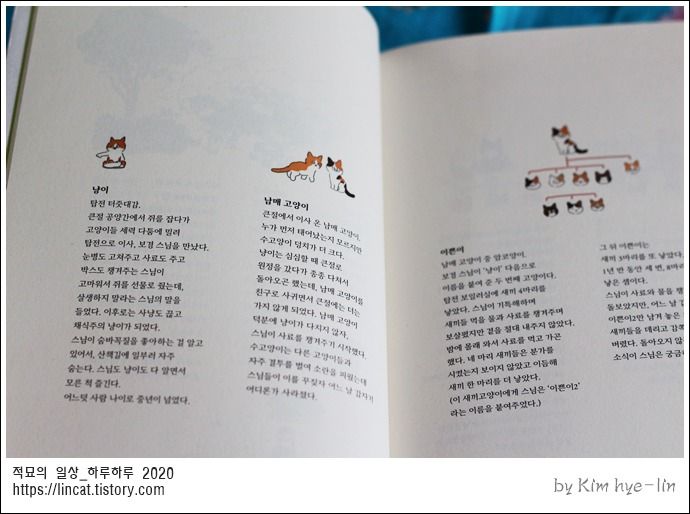 냥이
탑전 터줏대감.
큰절 공양간에서 쥐를 잡다가
고양이들 세력 다툼에 밀려
탑전으로 이사, 보경 스님을 만났다.
눈병도 고쳐주고 사료도 주고
박스도 챙겨주는 스님이
고마워서 쥐를 선물로 줬는데,
살생하지 말라는 스님의 말을
들었다. 이후로는 사냥도 끊고
채식주의 냥이가 되었다.
스님이 숨바꼭질을 좋아하는 걸 알고
있어서, 산책길에 일부러 자주
숨는다. 스님도 냥이도 다 알면서
모른 척 즐긴다.
어느덧 사람 나이로 중년이 넘었다.
남매 고양이
큰절에서 이사 온 남매 고양이.
누가 먼저 태어났는지 모르지만
수고양이 덩치가 더 크다.
냥이는 심심할 때 큰절로
원정을 갔다가 종종 다쳐서
돌아오곤 했는데, 남매 고양이를
친구로 사귀면서 큰절에는 더는
가지 않게 되었다. 남매 고양이
덕분에 냥이가 다치지 않자,
스님이 사료를 챙겨주기 시작했다.
수고양이는 다른 고양이들과
자주 결투를 벌여 소란을 피웠는데
스님들이 이를 꾸짖자 어느 날 갑자기
어디론가 사라졌다.
이쁜이
남매 고양이 중 암고양이.
보경 스님이 '냥이' 다음으로
이름을 붙여 준 두 번째 고양이다.
탑전 보일러실에 새끼 4마리를
낳았다. 스님이 기특해하며
새끼들 먹을 물과 사료를 챙겨주며
보살폈지만 곁을 절대 내주지 않았다.
밤에 몰래 와서 사료를 먹고 가곤
했다. 네 마리 새끼들은 분가를
시켰는지 보이지 않았고 이듬해
새끼 한 마리를 더 낳았다.
(이 새끼고양이에게 스님은 '이쁜이2'
라는 이름을 붙여주었다.)
그 뒤 이쁜이는
새끼 3마리를 또 낳았다.
1년 반 동안 세 번, 8마리
낳은 셈이다.
스님이 사료와 물을 챙
돌보았지만, 어느 날
이쁜이2만 남겨 놓은
새끼들을 데리고 감쪽
버렸다. 돌아오지 않
소식이 스님은 궁금
적묘의 일상_하루하루 2020
https://lincat.tistory.com
by Kim hye-lin